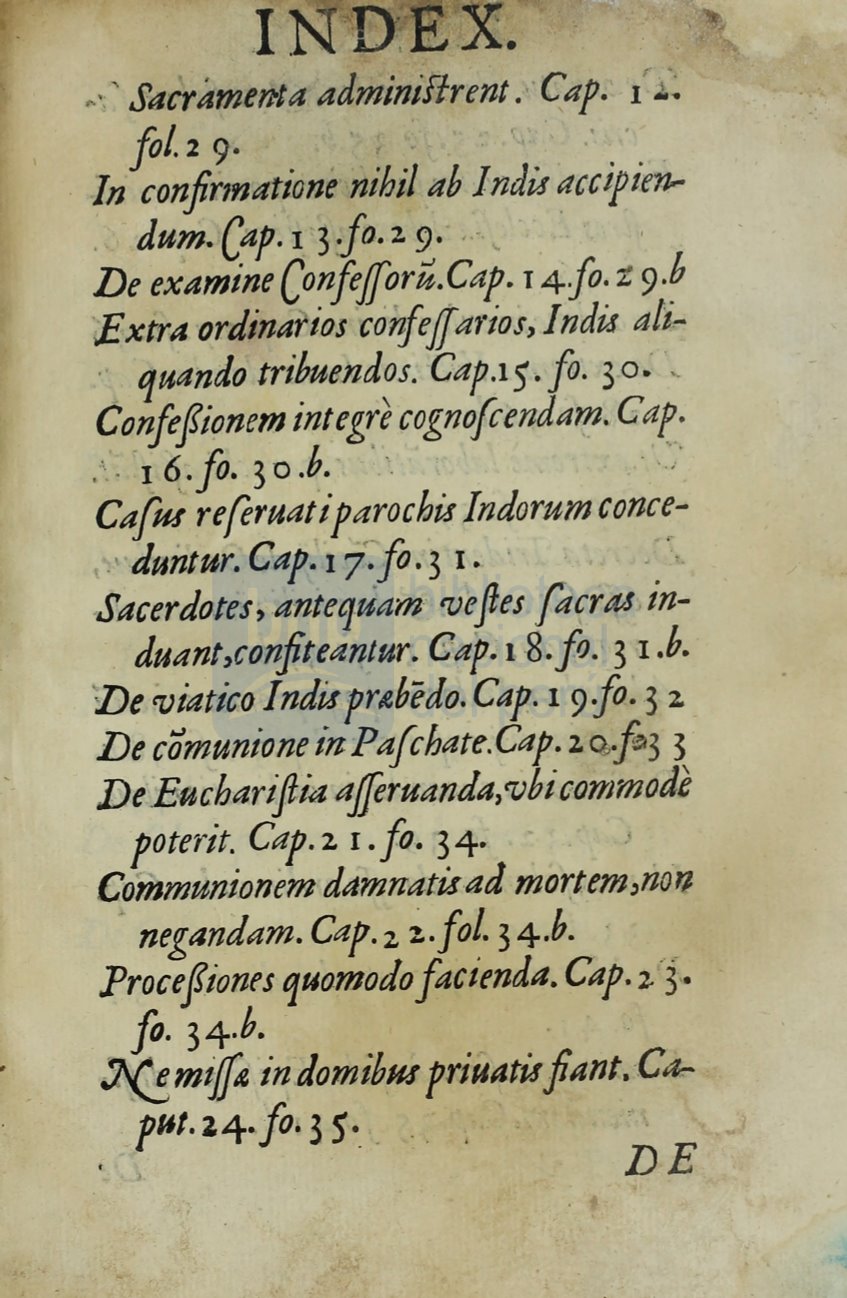 INDEX.
Sacramenta adminiſtrent. Cap. 12.
fol. 29.
In confirmatione nihil ab Indis accipien-
dum. Cap. 13. fo. 29.
De examine Confeſſorū. Cap. 14. fo. 29.b
Extra ordinarios confeſſarios, Indis ali-
quando tribuendos. Cap. 15. fo. 30.
Confeßionem integrè cognoſcendam. Cap.
16. fo. 30.b.
Caſus reſeruati parochis Indorum conce-
duntur. Cap. 17. fo. 31.
Sacerdotes, antequam veſtes ſacras in-
duant, confiteantur. Cap. 18. fo. 31.b.
De viatico Indis præbēdo. Cap. 19. fo. 32
De cōmunione in Paſchate. Cap. 20. fo 33
De Euchariſtia aſſeruanda, vbi commodè
poterit. Cap. 21. fo. 34.
Communionem damnatis ad mortem, non
negandam. Cap. 22. fol. 34.b.
Proceßiones quomodo facienda. Cap. 23.
fo. 34.b.
Ne miſſæ in domibus priuatis fiant. Ca-
put. 24. fo. 35.
DE